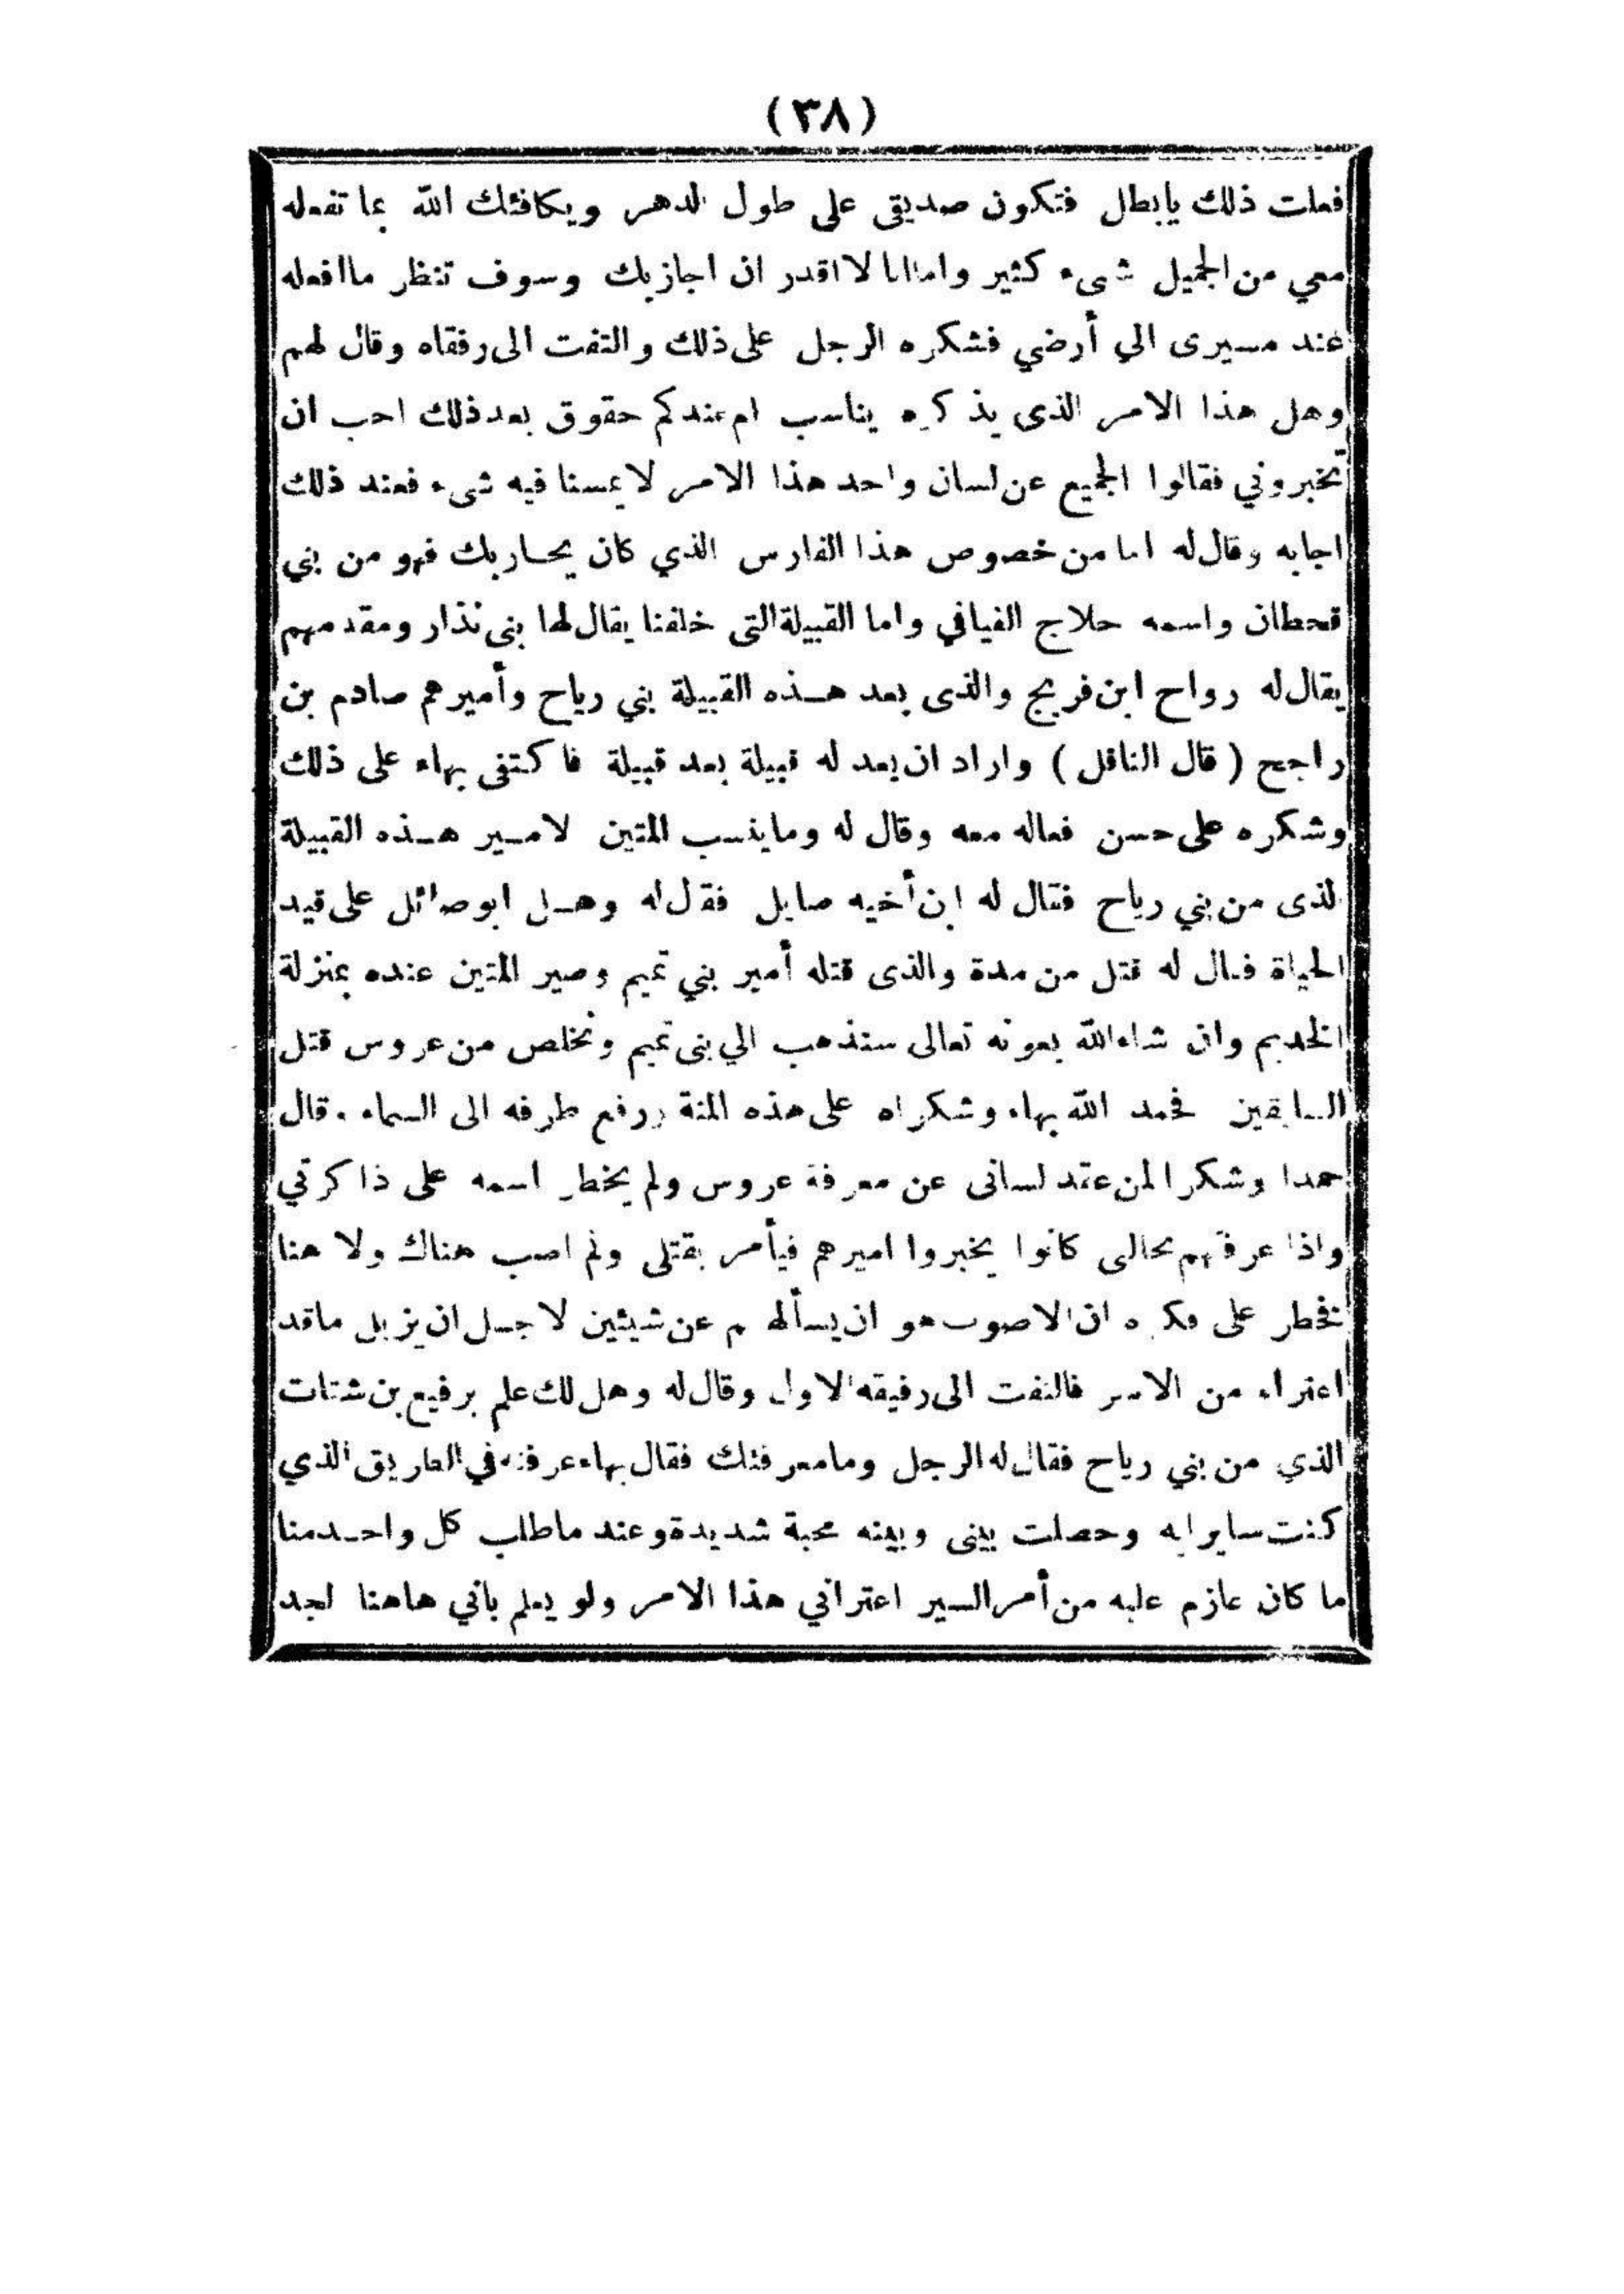 (٣٨)
فعلت ذلك يابطل فتكون صديقى على طول الدهر ويكافئك الله بما تفعله
معي من الجميل شىء كثير واما انا لا اقدر ان اجازيك وسوف تنظر ما افعله
عند مسيرى الي أرضي فشكره الرجل على ذلك والتفت الى رفقاه وقال لهم
وهل هذا الامر الذى يذكره يناسب ام عندكم حقوق بعد ذلك احب ان
تخبروني فقالوا الجميع عن لسان واحد هذا الامر لا يمسنا فيه شىء فعند ذلك
اجابه وقال له اما من خصوص هذا الفارس الذي كان يحاربك فهو من بني
قحطان واسمه حلاج الفيافي واما القبيلة التى خلفنا يقال لها بنى نذار ومقدمهم
يقال له رواح ابن فريج والذى بعد هذه القبيلة بني رياح وأميرهم صادم بن
راجح ( قال الناقل ) واراد ان يعد له قبيلة بعد قبيلة فاكتفى بهاء على ذلك
وشكره على حسن فعاله معه وقال له وما ينسب المتين لامير هذه القبيلة
الذى من بني رياح فقال له ابن أخيه صايل فقال له وهل ابو صائل على قيد
الحياة فقال له قتل من مدة والذى قتله أمير بني تميم وصير المتين عنده بمنزلة
الخديم وان شاء الله بعونه تعالى سنذهب الي بنى تميم ونخلص من عروس قتل
السابقين فحمد الله بهاء وشكراه على هذه المنة ورفع طرفه الى السماء وقال
حمدا وشكرا لمن عقد لسانى عن معرفة عروس ولم يخطر اسمه على ذاكرتي
واذا عرفتهم بحالى كانوا يخبروا اميرهم فيأمر بقتلى ولم اصب هناك ولا هنا
فخطر على فكره ان الاصوب هو ان يسألهم عن شيئين لاجل ان يزيل ماقد
اعتراه من الامر فالتفت الى رفيقه الاول وقال له وهل لك علم برفيع بن شتات
الذي من بني رياح فقال له الرجل وما معرفتك فقال بهاء عرفته في الطريق الذي
كنت سايرا به وحصلت بينى وبينه محبة شديدة وعند ماطلب كل واحد منا
ما كان عازم عليه من أمر السير اعتراني هذا الامر ولو يعلم باني هاهنا لجد